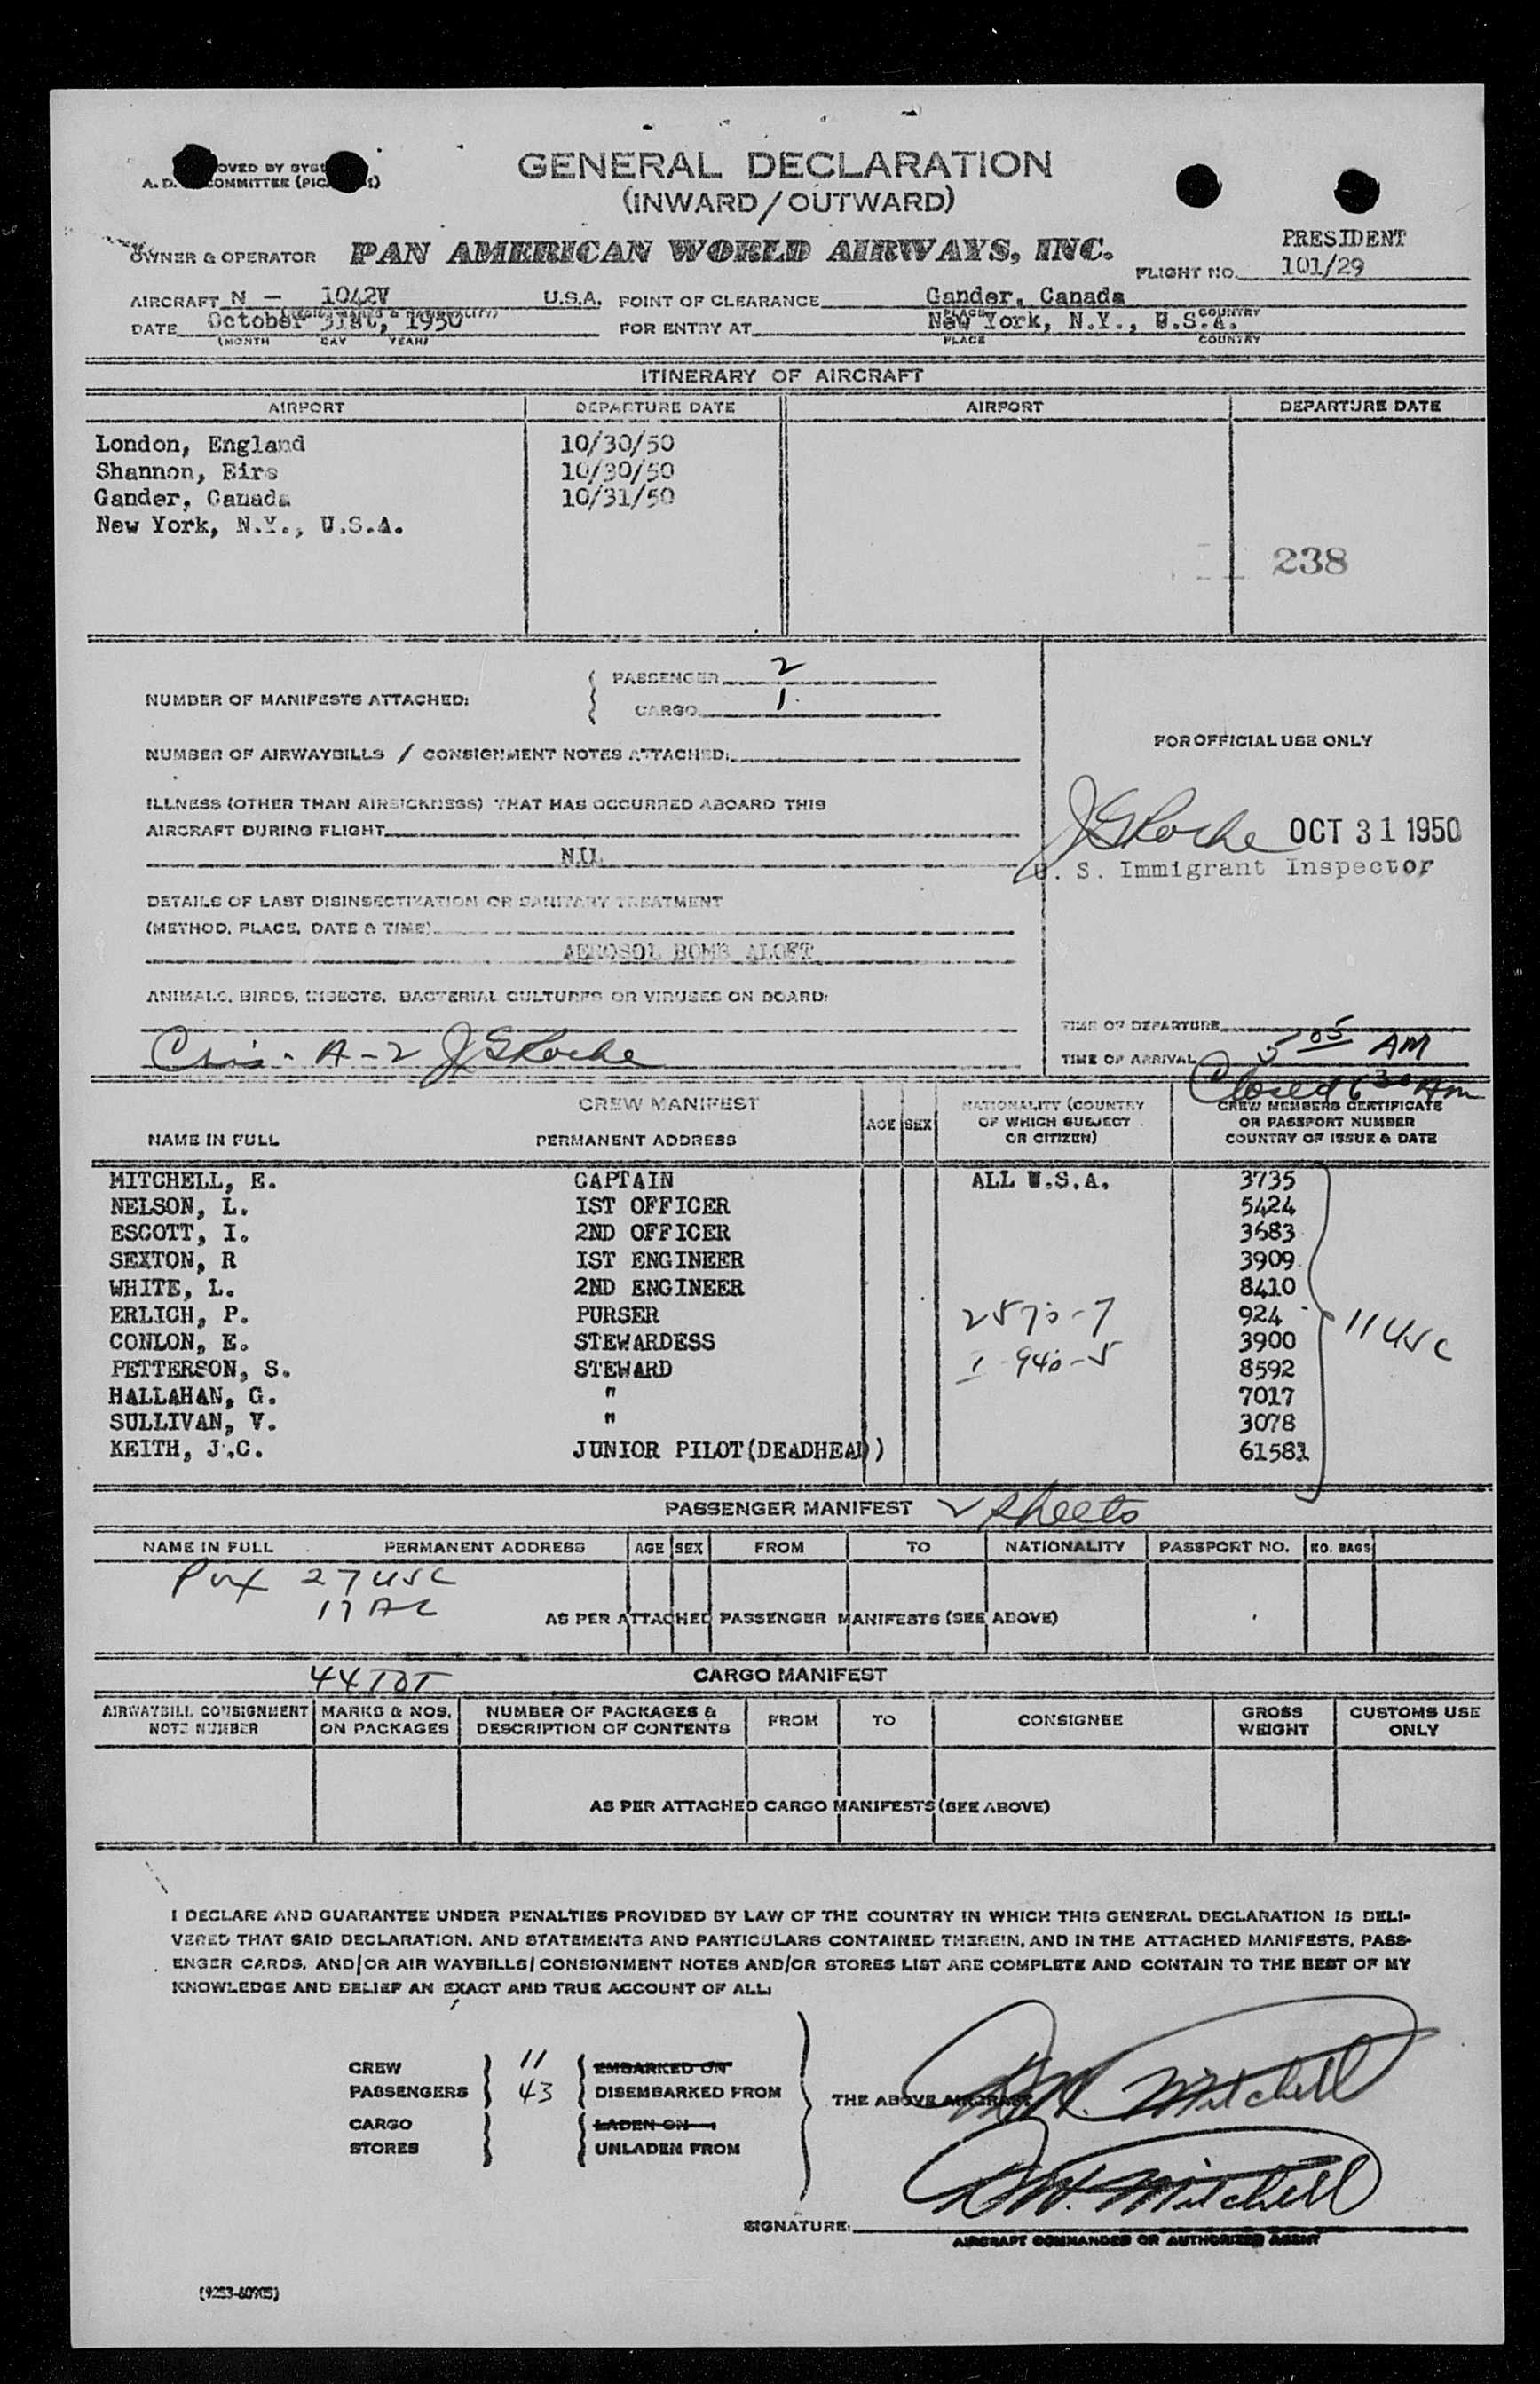 GENERAL DECLARATION
(INWARD/OUTWARD)
OWNER & OPERATOR PAN AMERICAN WORLD AIRWAYS, INC.
PRESIDENT
FLIGHT NO. 101/29
AIRCRAFT N - 1042V U.S.A. POINT OF CLEARANCE Gander, Canada
DATE October 31st, 1950 FOR ENTRY AT New York, N.Y., U.S.A.
(MONTH DAY YEAR) PLACE COUNTRY
ITINERARY OF AIRCRAFT
AIRPORT DEPARTURE DATE AIRPORT DEPARTURE DATE
London, England 10/30/50
Shannon, Eire 10/30/50
Gander, Canada 10/31/50
New York, N.Y., U.S.A.
238
NUMBER OF MANIFESTS ATTACHED: PASSENGER 2
CARGO 1
NUMBER OF AIRWAYBILLS / CONSIGNMENT NOTES ATTACHED:
FOR OFFICIAL USE ONLY
ILLNESS (OTHER THAN AIRSICKNESS) THAT HAS OCCURRED ABOARD THIS
AIRCRAFT DURING FLIGHT
NIL
JGRoche OCT 31 1950
U. S. Immigrant Inspector
DETAILS OF LAST DISINSECTIZATION OR SANITARY TREATMENT
(METHOD, PLACE, DATE & TIME)
AEROSOL BOMB ALOFT
ANIMALS, BIRDS, INSECTS, BACTERIAL CULTURES OR VIRUSES ON BOARD:
A-2 JGRoche
TIME OF DEPARTURE
TIME OF ARRIVAL 5 05 AM
Closed 6 30 Am
CREW MANIFEST
NAME IN FULL PERMANENT ADDRESS AGE SEX NATIONALITY (COUNTRY OF WHICH SUBJECT OR CITIZEN) CREW MEMBERS CERTIFICATE OR PASSPORT NUMBER COUNTRY OF ISSUE & DATE
MITCHELL, E. CAPTAIN ALL U.S.A. 3735
NELSON, L. 1ST OFFICER 5424
ESCOTT, I. 2ND OFFICER 3683
SEXTON, R 1ST ENGINEER 3909
WHITE, L. 2ND ENGINEER 8410
ERLICH, P. PURSER 924
CONLON, E. STEWARDESS 3900 11 USC
PETTERSON, S. STEWARD 8592
HALLAHAN, G. " 7017
SULLIVAN, V. " 3078
KEITH, J.C. JUNIOR PILOT(DEADHEAD) 61581
PASSENGER MANIFEST 2 sheets
NAME IN FULL PERMANENT ADDRESS AGE SEX FROM TO NATIONALITY PASSPORT NO. NO. BAGS
27 USC
17 AL
AS PER ATTACHED PASSENGER MANIFESTS (SEE ABOVE)
44 TOT
CARGO MANIFEST
AIRWAYBILL CONSIGNMENT NOTE NUMBER MARKS & NOS. ON PACKAGES NUMBER OF PACKAGES & DESCRIPTION OF CONTENTS FROM TO CONSIGNEE GROSS WEIGHT CUSTOMS USE ONLY
AS PER ATTACHED CARGO MANIFESTS (SEE ABOVE)
I DECLARE AND GUARANTEE UNDER PENALTIES PROVIDED BY LAW OF THE COUNTRY IN WHICH THIS GENERAL DECLARATION IS DELI-
VERED THAT SAID DECLARATION, AND STATEMENTS AND PARTICULARS CONTAINED THEREIN, AND IN THE ATTACHED MANIFESTS, PASS-
ENGER CARDS, AND/OR AIR WAYBILLS/CONSIGNMENT NOTES AND/OR STORES LIST ARE COMPLETE AND CONTAIN TO THE BEST OF MY
KNOWLEDGE AND BELIEF AN EXACT AND TRUE ACCOUNT OF ALL:
CREW 11 EMBARKED ON
PASSENGERS 43 DISEMBARKED FROM
THE ABOVE AIRCRAFT
CARGO LADEN ON
STORES UNLADEN FROM
Mitchell
Mitchell
SIGNATURE:
AIRCRAFT COMMANDER OR AUTHORIZED AGENT
(9253-60905)